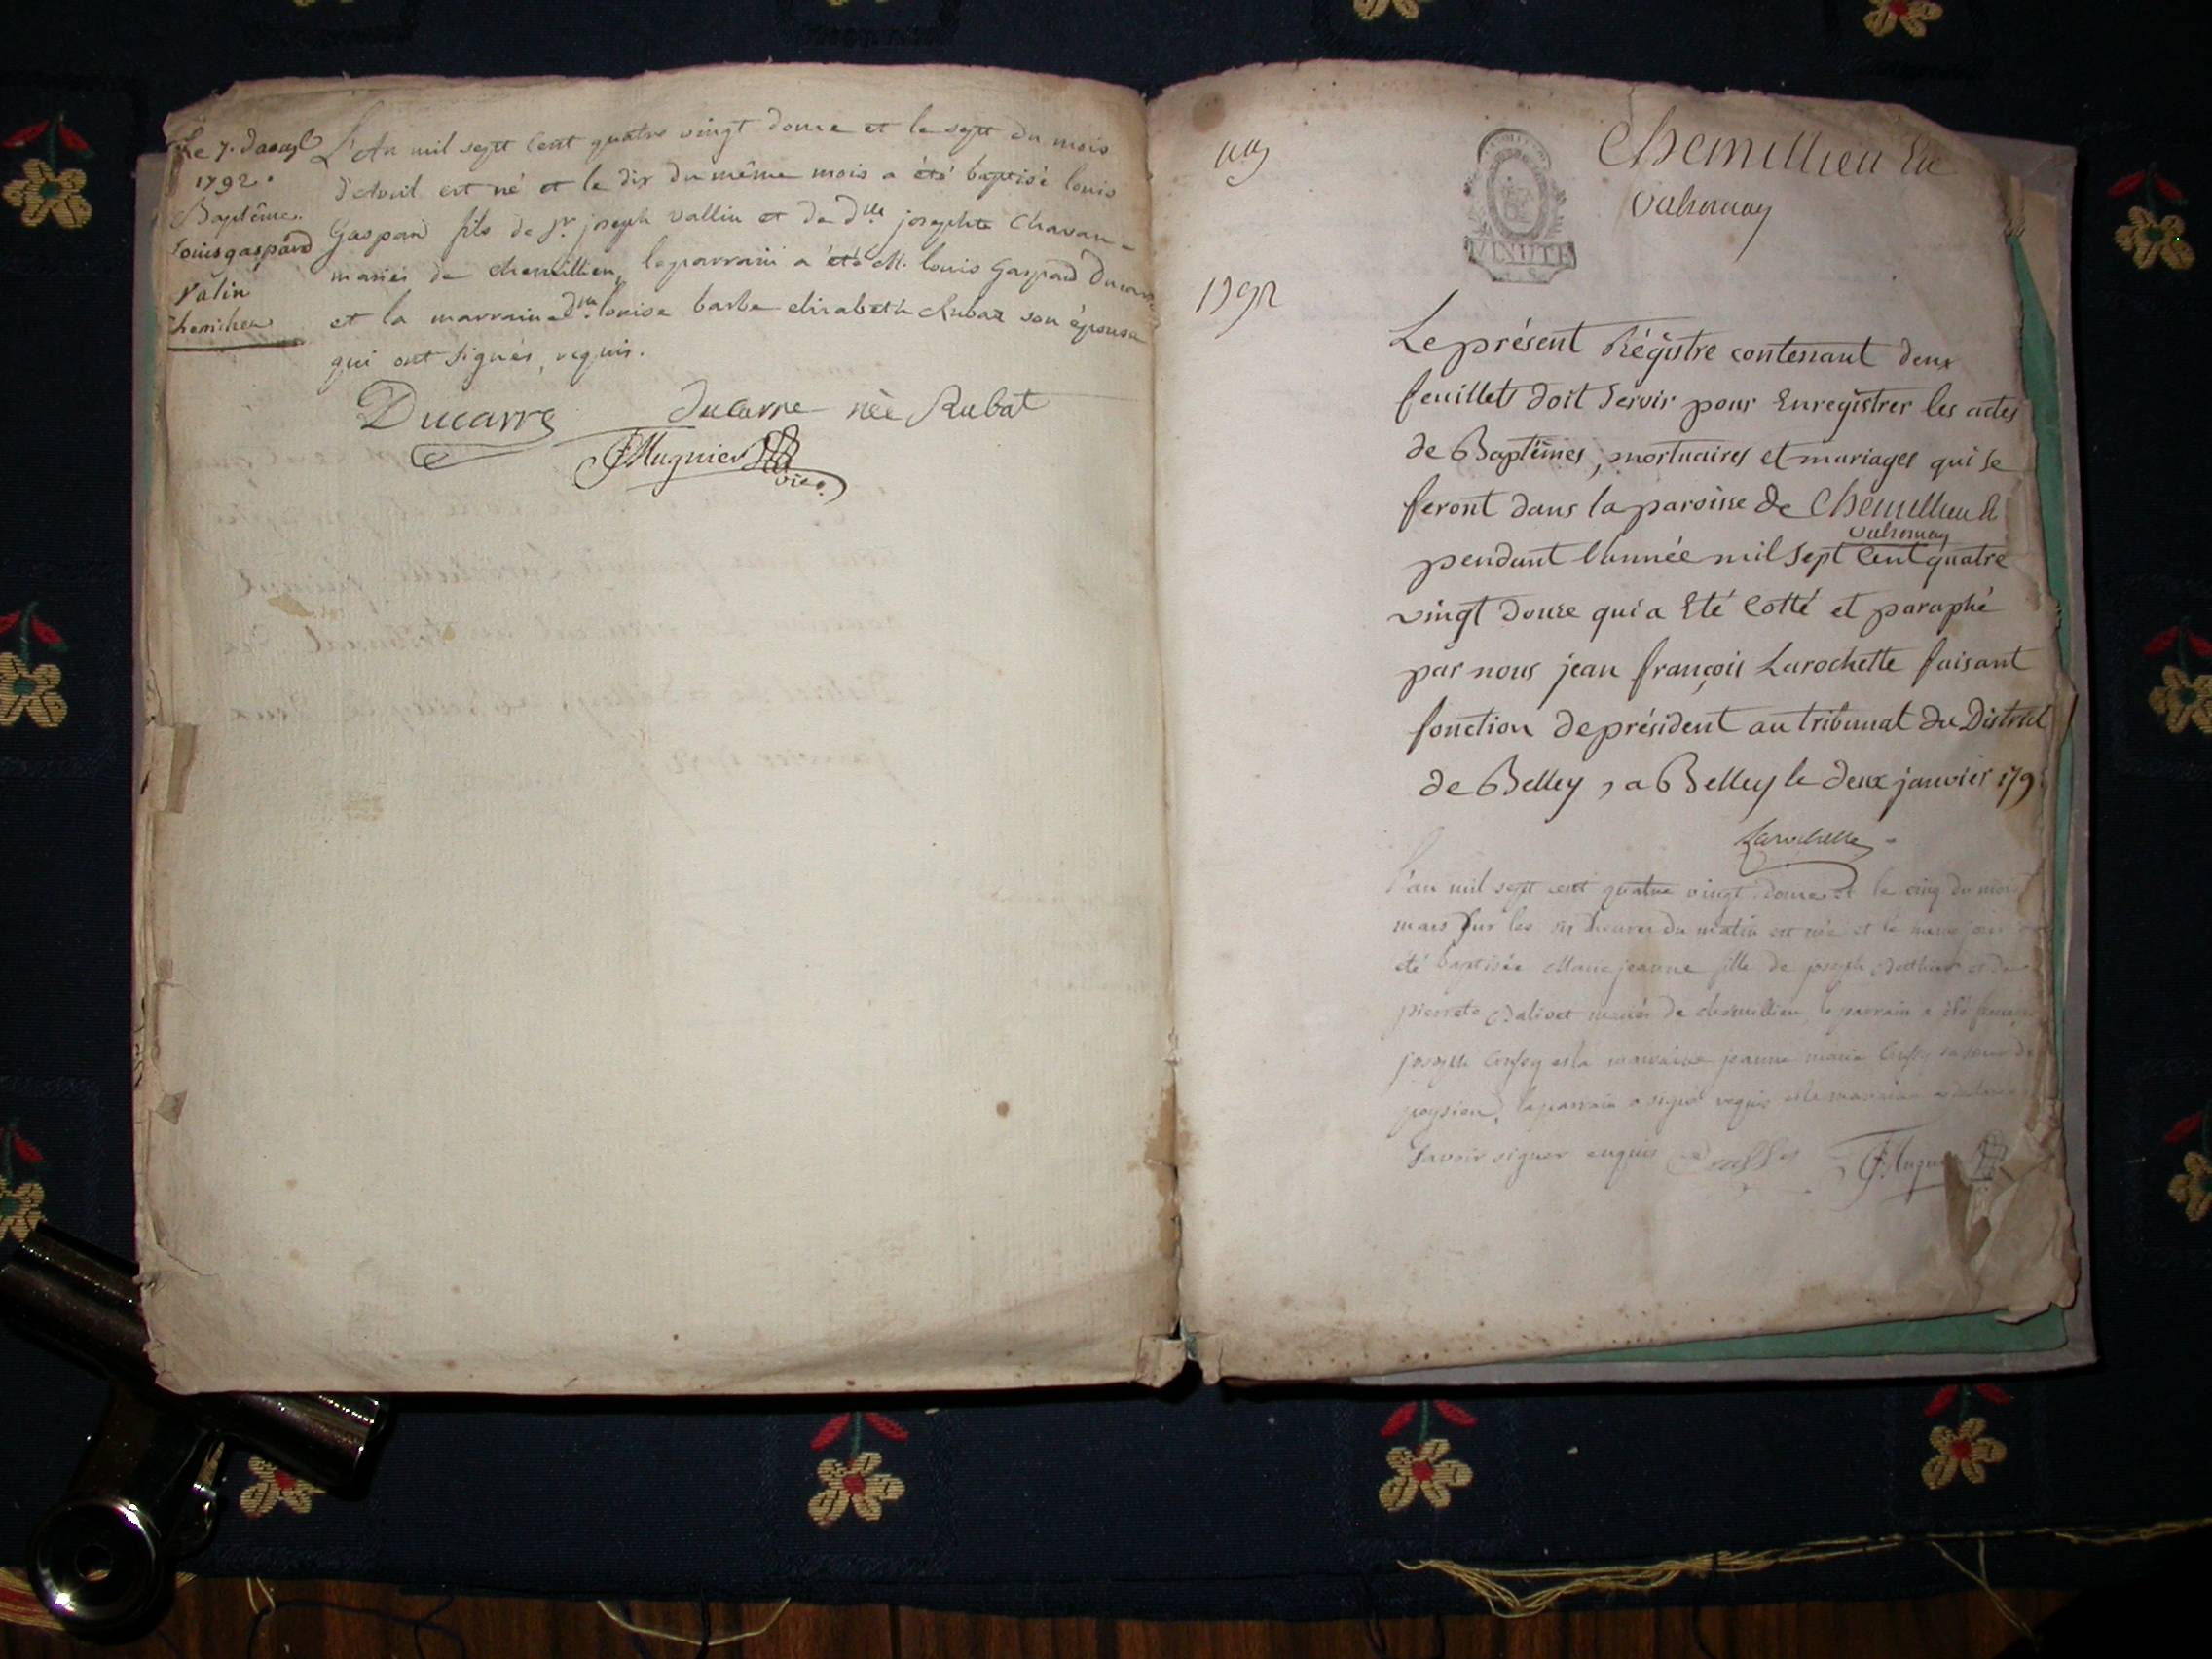 Le 7. daoust
1792.
Baptême.
Louis gaspard
Valin
Chemilieu
L'An mil sept cent quatre vingt douze et le sept du mois
d'Aout est né et le dix du même mois a été baptisé louis
Gaspard fils de Sr. joseph Vallin et de dlle josephte Chavan-
mariés de chemillieu, le parrain a été M. louis Gaspard Ducarre
et la marraine dme. louise barbe elisabeth Rubat son épouse
qui ont signés, requis.
Ducarre
ducarre née Rubat
JMugnier
vic.
Chemillieu Et
1792
MINUTE
Le présent Régistre contenant deux
feuillets doit servir pour Enregistrer les actes
de Baptêmes, mortuaires et mariages qui se
feront dans la paroisse de Chemillieu Et
pendant l'année mil sept Cent quatre
vingt douze qui a Eté Cotté et paraphé
par nous jean françois Larochette faisant
fonction de président au tribunal du District
de Belley, a Belley le deux janvier 179
Larochette
l'an mil sept cent quatre vingt douze et le cinq du mois
mars sur les six heures du matin est née et le même jour
été baptisée Marie jeanne fille de joseph et de
pierrete Dalivet mariés de chemillieu, le parrain a été
joseph et la marraine jeanne marie sa soeur de
peyzieu, le parrain a signé requis et la marraine a declaré
savoir signer enquis